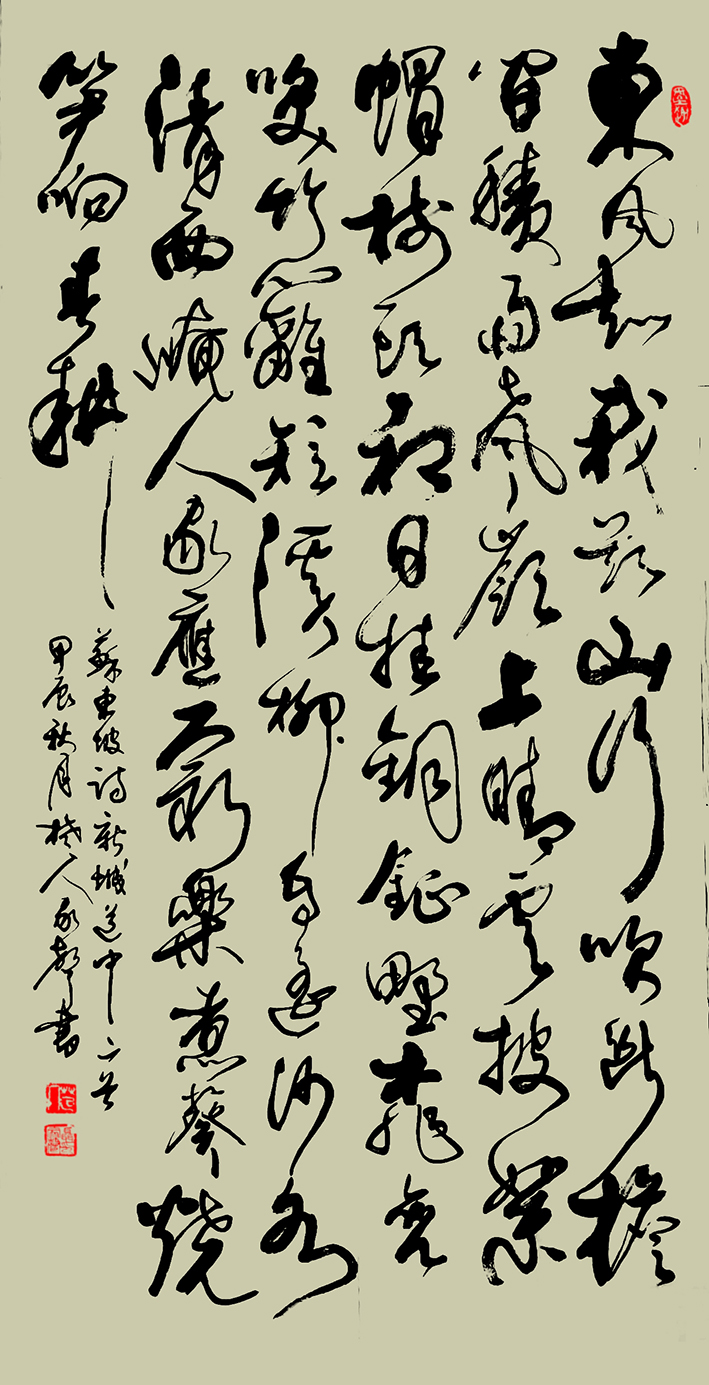 東风知我欲山行吹断檐
间積雨声嶺上晴雲披絮
帽樹頭初日挂銅鉦野桃含
咲竹籬短溪柳自遥沙水
清西崦人家應最樂煮葵燒
笋响春耕
蘇東坡詩新城道中二首
甲辰秋月人書